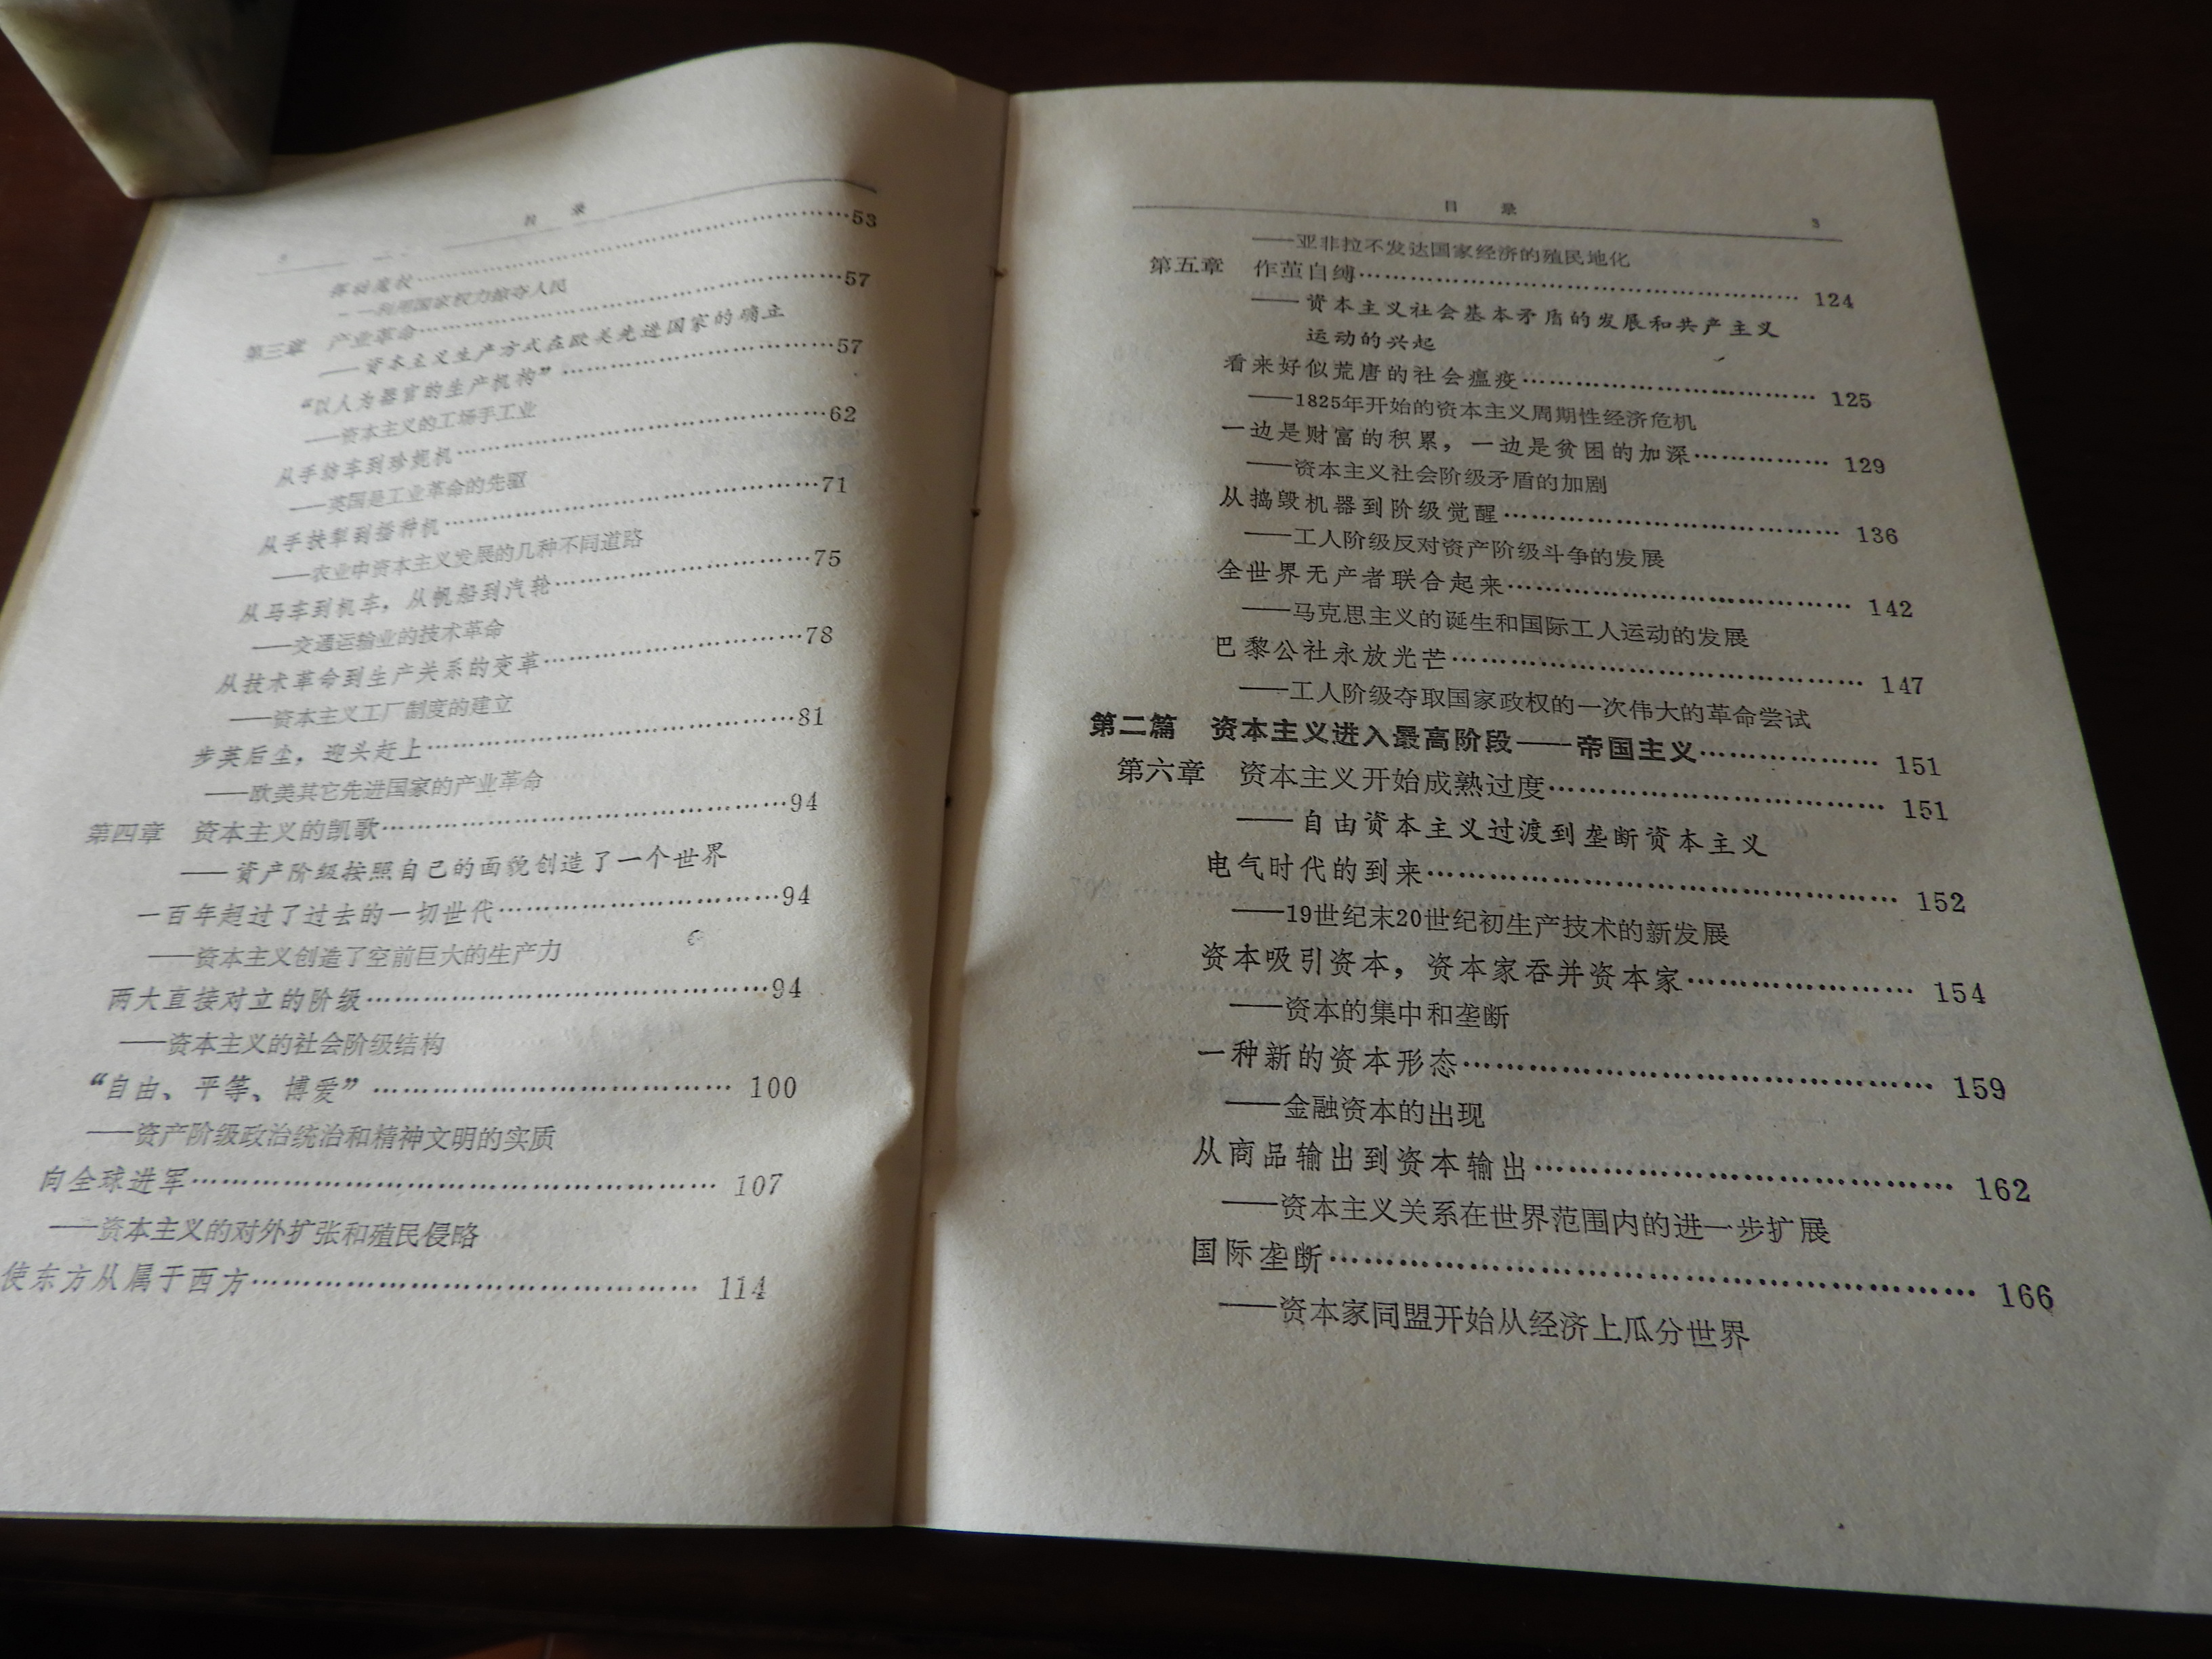 目 录
……53
——利用国家权力掠夺人民
第三章 产业革命……57
——资本主义生产方式在欧美先进国家的确立
“以人为器官的生产机构”……57
——资本主义的工场手工业
从手纺车到珍妮机……62
——英国是工业革命的先驱
从手扶犁到播种机……71
——农业中资本主义发展的几种不同道路
从马车到机车，从帆船到汽轮……75
——交通运输业的技术革命
从技术革命到生产关系的变革……78
——资本主义工厂制度的建立
步英后尘，迎头赶上……81
——欧美其它先进国家的产业革命
第四章 资本主义的凯歌……94
——资产阶级按照自己的面貌创造了一个世界
一百年超过了过去的一切世代……94
——资本主义创造了空前巨大的生产力
两大直接对立的阶级……94
——资本主义的社会阶级结构
“自由、平等、博爱”……100
——资产阶级政治统治和精神文明的实质
向全球进军……107
——资本主义的对外扩张和殖民侵略
使东方从属于西方……114
目 录 3
——亚非拉不发达国家经济的殖民地化
第五章 作茧自缚……124
——资本主义社会基本矛盾的发展和共产主义
运动的兴起
看来好似荒唐的社会瘟疫……125
——1825年开始的资本主义周期性经济危机
一边是财富的积累，一边是贫困的加深……129
——资本主义社会阶级矛盾的加剧
从捣毁机器到阶级觉醒……136
——工人阶级反对资产阶级斗争的发展
全世界无产者联合起来……142
——马克思主义的诞生和国际工人运动的发展
巴黎公社永放光芒……147
——工人阶级夺取国家政权的一次伟大的革命尝试
第二篇 资本主义进入最高阶段——帝国主义……151
第六章 资本主义开始成熟过度……151
——自由资本主义过渡到垄断资本主义
电气时代的到来……152
——19世纪末20世纪初生产技术的新发展
资本吸引资本，资本家吞并资本家……154
——资本的集中和垄断
一种新的资本形态……159
——金融资本的出现
从商品输出到资本输出……162
——资本主义关系在世界范围内的进一步扩展
国际垄断……166
——资本家同盟开始从经济上瓜分世界